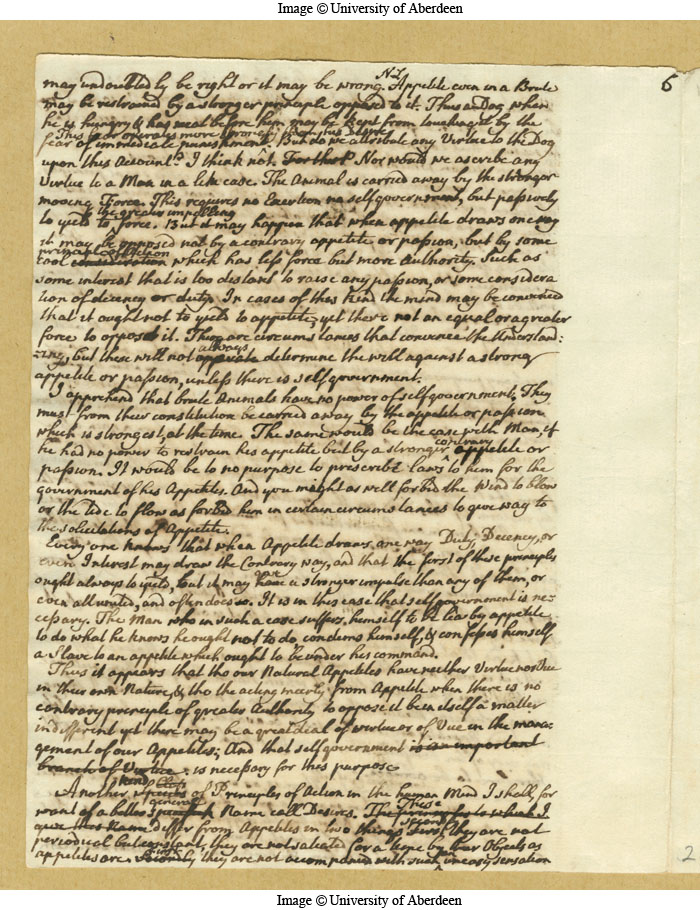 Image © University of Aberdeen
6
may undoubtedly be right or it may be wrong. NL Appetite even in a Brute
may be restrained by a stronger principle opposed to it. Thus a Dog when
he is hungry & has meat before him may be kept from touching it by the
fear of immediate punishment. But do we attribute any Virtue to the Dog
upon this Account? I think not. Nor would we ascribe any
Virtue to a Man in a like case. The Animal is carried away by the stronger
moving Force. This requires no Exertion no self government, but passively
to yield to the greater impelling force. But it may happen that when appetite draws one way
it may be opposed not by a contrary appetite or passion, but by some
cool principle of Action consideration which has less force but more Authority. Such as
some interest that is too distant to raise any passion, or some considera
tion of decency or duty. In cases of this kind the mind may be convinced
that it ought not to yield to appetite, yet there is not an equal or a greater
force to oppose it. There are circumstances that convince the Understand:
-ing, but these will not always determine the will against a strong
appetite or passion, unless there is self government.
I apprehend that brute Animals have no power of self government. They
must from their constitution be carried away by the appetite or passion
which is strongest, at the time. The same would be the case with Man, if
he had no power to restrain his appetite but by a stronger contrary appetite or
passion. It would be to no purpose to prescribe laws to him for the
government of his Appetites. And you might as well forbid the Wind to blow
or the tide to flow as forbid him in certain circumstances to give way to
the solicitations of Appetite.
Every one knows that when Appetite draws one way Duty, Decency, or
even Interest may draw the Contrary way, and that the first of these principles
ought always to yield, but it may have a stronger impulse than any of them, or
even all united, and often does so. It is in this case that self government is ne-
cessary. The Man who in such a case suffers himself to be led by appetite
to do what he knows he ought not to do condemns himself, & confesses himself
a Slave to an appetite which ought to be under his command.
Thus it appears that tho our Natural Appetites have neither Virtue nor Vice
in their own Nature, & tho the acting meerly from Appetite when there is no
contrary principle of greater Authority to oppose it be in itself a matter
indifferent yet there may be a great deal of virtue or of Vice in the mana-
gement of our Appetites; And that self government is an important
branch of Virtue. is necessary for this purpose
Another species of Principles of Action in the human Mind I shall, for
want of a better general Name call Desires. These
differ from Appetites in two things. They are not
periodical but constant, they are not satiated for a time by their Objects as
appetites are. they are not accompanied with such an uneasy sensation
2
Image © University of Aberdeen